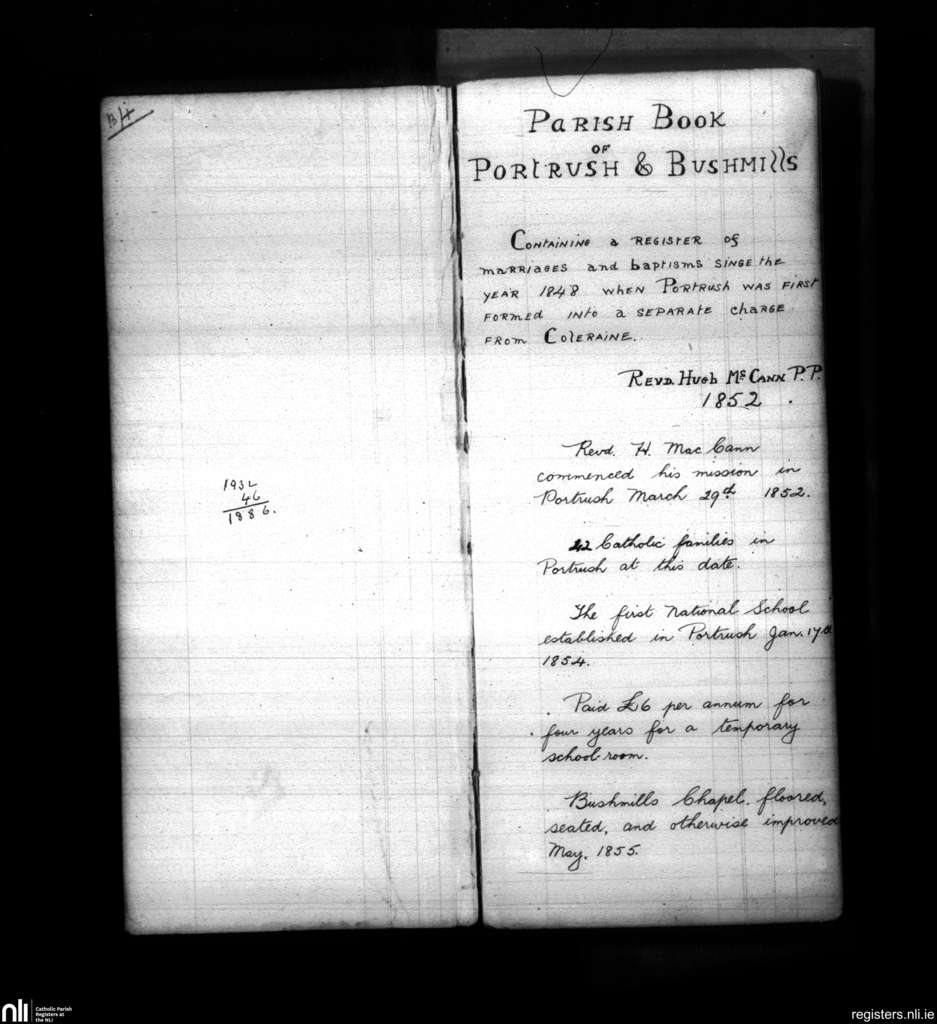 B 4
1932
46
1886.
PARISH BOOK
OF
PORTRUSH & BUSHMILLS
CONTAINING a REGISTER of
MARRIAGES and baptisms SINCE the
YEAR 1848 WHEN PORTRUSH WAS FIRST
FORMED INto a SEPARATE chARGE
FROM COLERAINE.
REVD. HUGh Mc CANN P.P.
1852.
Revd. H. Mac Cann
commenced his mission in
Portrush March 29th 1852.
42 Catholic families in
Portrush at this date.
The first National School
established in Portrush Jan. 17th
1854.
Paid £6 per annum for
four years for a temporary
school room.
Bushmills Chapel. floored,
seated, and otherwise improved
May. 1855.
nli
Catholic Parish
Registers at
the NLI
registers.nli.ie